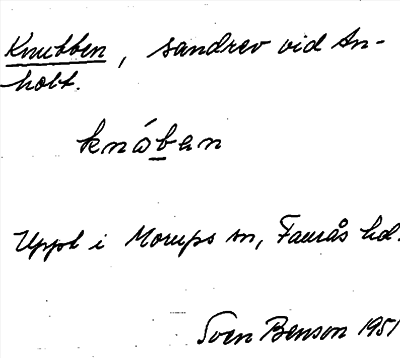 Knubben, sandrev vid An-
holt.
knóban
Uppt i Morups sn, Faurås hd.
Sven Benson 1951